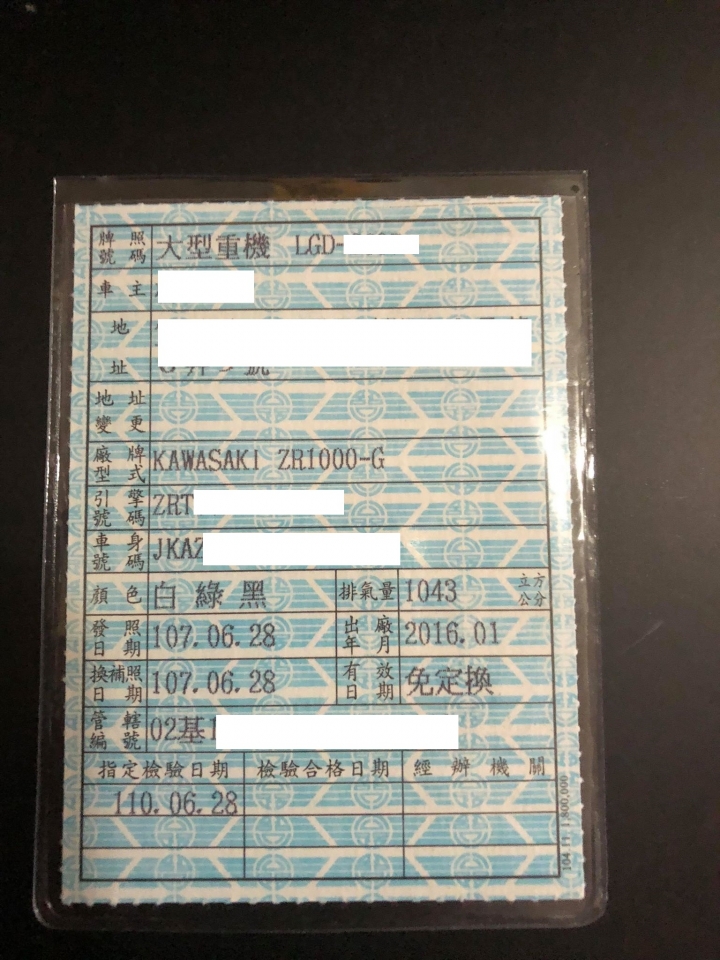 牌照號碼 大型重機 LGD-
車主
地址 號
地址變更
廠牌型式 KAWASAKI ZR1000-G
引擎號碼 ZRT
車身號碼 JKAZ
顏色 白綠黑 排氣量 1043 立方公分
發照日期 107.06.28 出廠年月 2016.01
換補照日期 107.06.28 有效日期 免定換
管轄編號 02基1
指定檢驗日期 檢驗合格日期 經辦機關
110.06.28
104.11 1,800,000